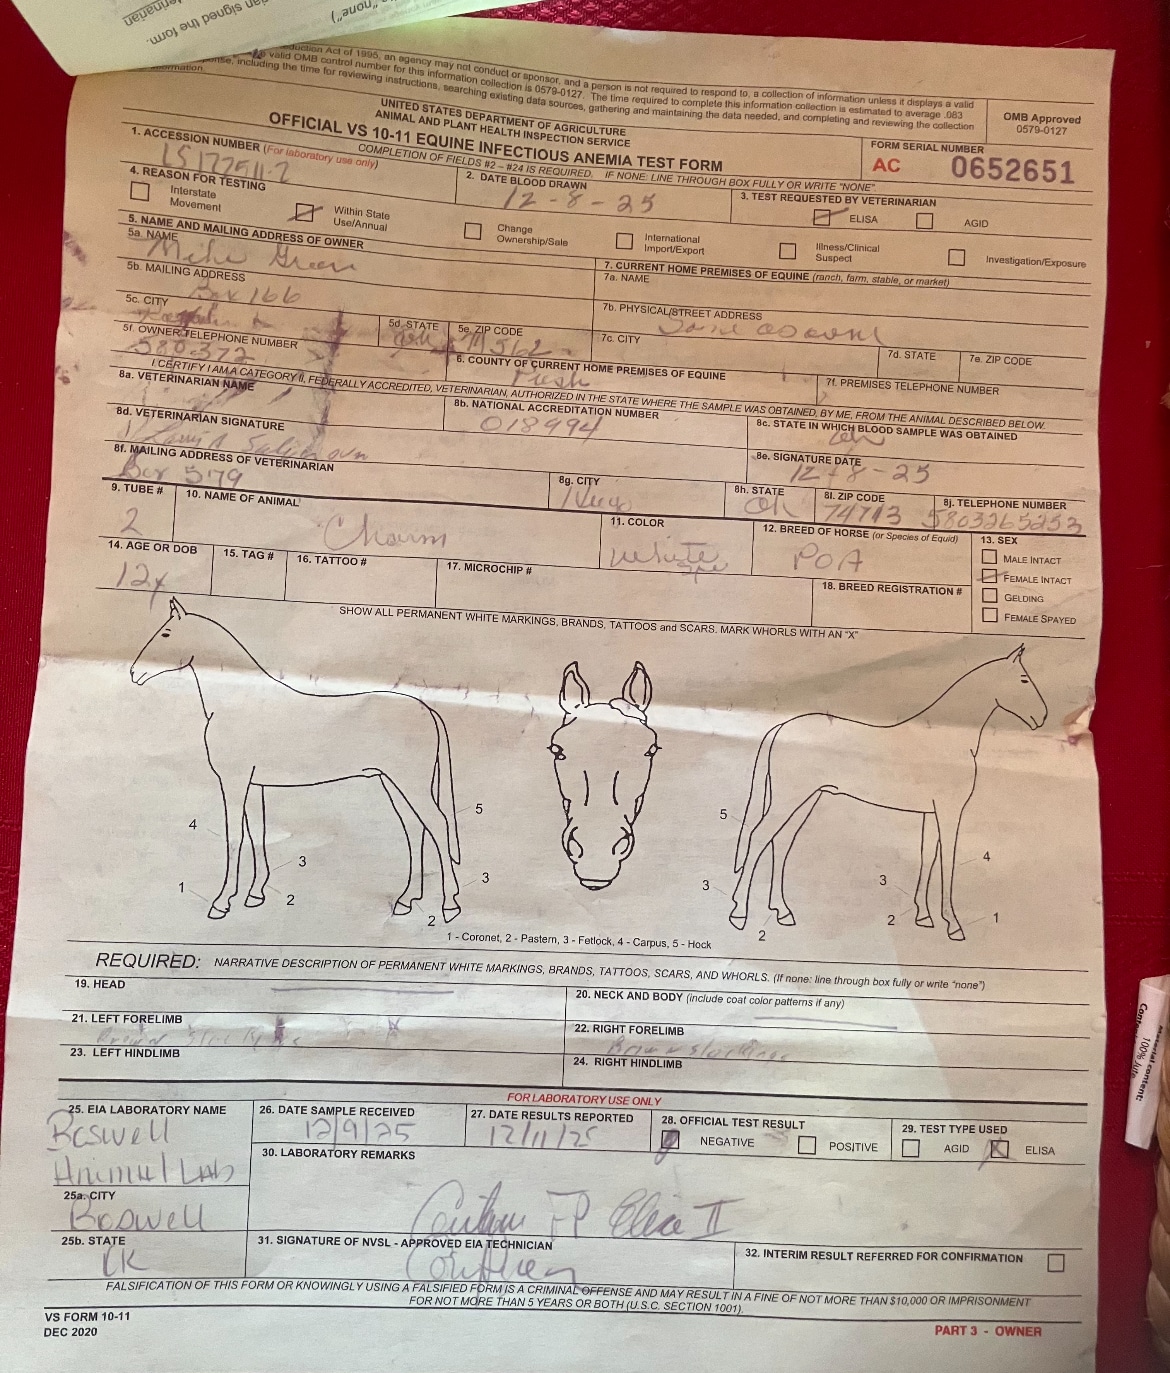 an signed the form.
("none")
duction Act of 1995, an agency may not conduct or sponsor, and a person is not required to respond to, a collection of information unless it displays a valid
valid OMB control number for this information collection is 0579-0127. The time required to complete this information collection is estimated to average .083
nse, including the time for reviewing instructions, searching existing data sources, gathering and maintaining the data needed, and completing and reviewing the collection
nformation.
OMB Approved
0579-0127
UNITED STATES DEPARTMENT OF AGRICULTURE
ANIMAL AND PLANT HEALTH INSPECTION SERVICE
OFFICIAL VS 10-11 EQUINE INFECTIOUS ANEMIA TEST FORM
COMPLETION OF FIELDS #2 – #24 IS REQUIRED. IF NONE: LINE THROUGH BOX FULLY OR WRITE "NONE"
FORM SERIAL NUMBER
AC 0652651
1. ACCESSION NUMBER (For laboratory use only)
LS177511-2
2. DATE BLOOD DRAWN
12-8-25
3. TEST REQUESTED BY VETERINARIAN
ELISA
AGID
4. REASON FOR TESTING
Interstate Movement
Within State Use/Annual
Change Ownership/Sale
International Import/Export
Illness/Clinical Suspect
Investigation/Exposure
5. NAME AND MAILING ADDRESS OF OWNER
5a. NAME
Mike Green
5b. MAILING ADDRESS
Box 166
5c. CITY
5d. STATE
Ok
5e. ZIP CODE
5f. OWNER TELEPHONE NUMBER
580 372
6. COUNTY OF CURRENT HOME PREMISES OF EQUINE
Push
7. CURRENT HOME PREMISES OF EQUINE (ranch, farm, stable, or market)
7a. NAME
7b. PHYSICAL/STREET ADDRESS
Same as owne
7c. CITY
7d. STATE
7e. ZIP CODE
7f. PREMISES TELEPHONE NUMBER
I CERTIFY I AM A CATEGORY II, FEDERALLY ACCREDITED, VETERINARIAN, AUTHORIZED IN THE STATE WHERE THE SAMPLE WAS OBTAINED, BY ME, FROM THE ANIMAL DESCRIBED BELOW.
8a. VETERINARIAN NAME
8b. NATIONAL ACCREDITATION NUMBER
018994
8c. STATE IN WHICH BLOOD SAMPLE WAS OBTAINED
Ok
8d. VETERINARIAN SIGNATURE
8e. SIGNATURE DATE
12-8-25
8f. MAILING ADDRESS OF VETERINARIAN
Box 579
8g. CITY
Hugo
8h. STATE
Ok
8i. ZIP CODE
74743
8j. TELEPHONE NUMBER
5803265253
9. TUBE #
2
10. NAME OF ANIMAL
Charm
11. COLOR
White
12. BREED OF HORSE (or Species of Equid)
POA
13. SEX
MALE INTACT
FEMALE INTACT
GELDING
FEMALE SPAYED
14. AGE OR DOB
12y
15. TAG #
16. TATTOO #
17. MICROCHIP #
18. BREED REGISTRATION #
SHOW ALL PERMANENT WHITE MARKINGS, BRANDS, TATTOOS and SCARS. MARK WHORLS WITH AN "X"
4 5 1 3 2 3 2
5 4 3 3 2 1 2
1 - Coronet, 2 - Pastern, 3 - Fetlock, 4 - Carpus, 5 - Hock
REQUIRED: NARRATIVE DESCRIPTION OF PERMANENT WHITE MARKINGS, BRANDS, TATTOOS, SCARS, AND WHORLS. (If none: line through box fully or write "none")
19. HEAD
20. NECK AND BODY (include coat color patterns if any)
21. LEFT FORELIMB
Brown
22. RIGHT FORELIMB
Brown stockings
23. LEFT HINDLIMB
24. RIGHT HINDLIMB
FOR LABORATORY USE ONLY
25. EIA LABORATORY NAME
Boswell
Animal Lab
25a. CITY
Boswell
25b. STATE
OK
26. DATE SAMPLE RECEIVED
12/9/25
27. DATE RESULTS REPORTED
12/11/25
28. OFFICIAL TEST RESULT
NEGATIVE
POSITIVE
29. TEST TYPE USED
AGID
ELISA
30. LABORATORY REMARKS
31. SIGNATURE OF NVSL - APPROVED EIA TECHNICIAN
32. INTERIM RESULT REFERRED FOR CONFIRMATION
FALSIFICATION OF THIS FORM OR KNOWINGLY USING A FALSIFIED FORM IS A CRIMINAL OFFENSE AND MAY RESULT IN A FINE OF NOT MORE THAN $10,000 OR IMPRISONMENT
FOR NOT MORE THAN 5 YEARS OR BOTH (U.S.C. SECTION 1001).
VS FORM 10-11
DEC 2020
PART 3 - OWNER
100% Jute